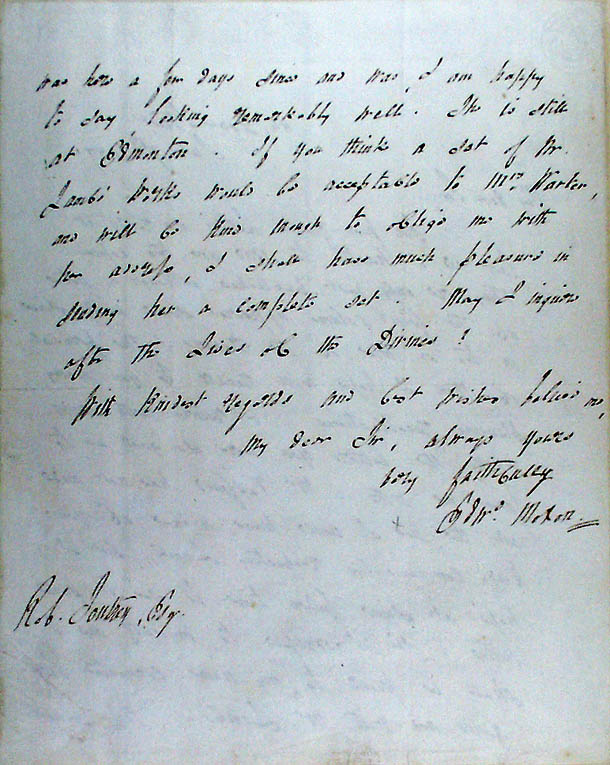 was here a few days since and was, I am happy
to say looking remarkably well. She is still
at Edmonton. If you think a set of Mr.
Lamb's Works would be acceptable to Mrs.
and will be kind enough to oblige me with
her address, I shall have much pleasure in
sending her a complete set. May I inquire
after the Lives of the Divines?
With kindest regards and best wishes believe me,
my dear Sir, always yours
very faithfully
Edwd. Moxon
Rob. Southey, Esq.